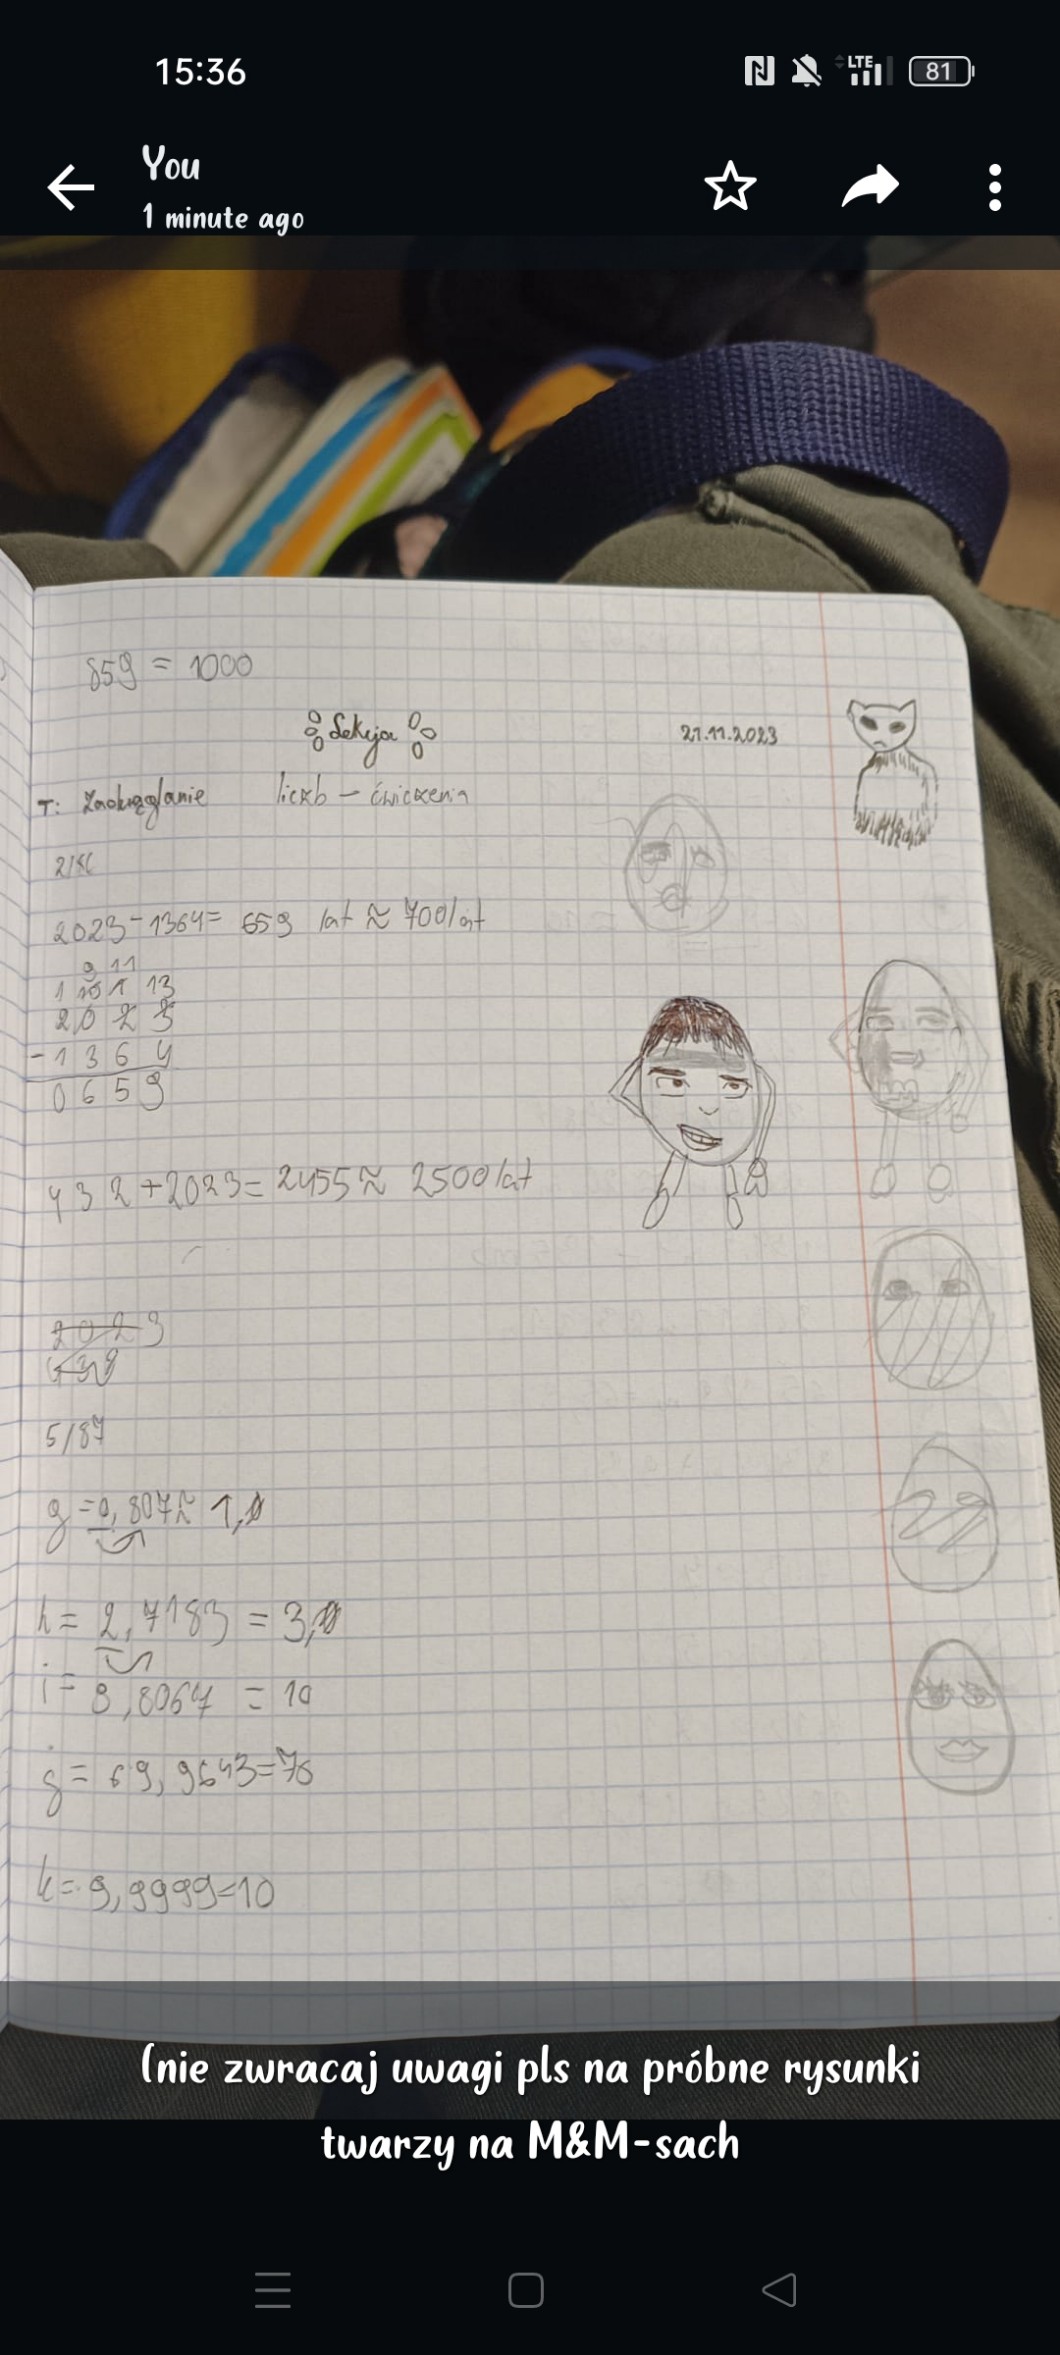 15:36
LTE
81
You
1 minute ago
859 = 1000
Lekcja
21.11.2023
T: Zaokrąglanie liczb - ćwiczenia
2/86
2023-1364= 659 lat ≈ 700lat
9 11
1 10 1 13
2023
-1364
0659
432+2023=2455≈ 2500lat
2023
432
5/87
g =0,807≈ 1,0
h= 2,7183 = 3,0
i= 9,8064 = 10
j= 69,9643=70
k=9,9999=10
(nie zwracaj uwagi pls na próbne rysunki
twarzy na M&M-sach